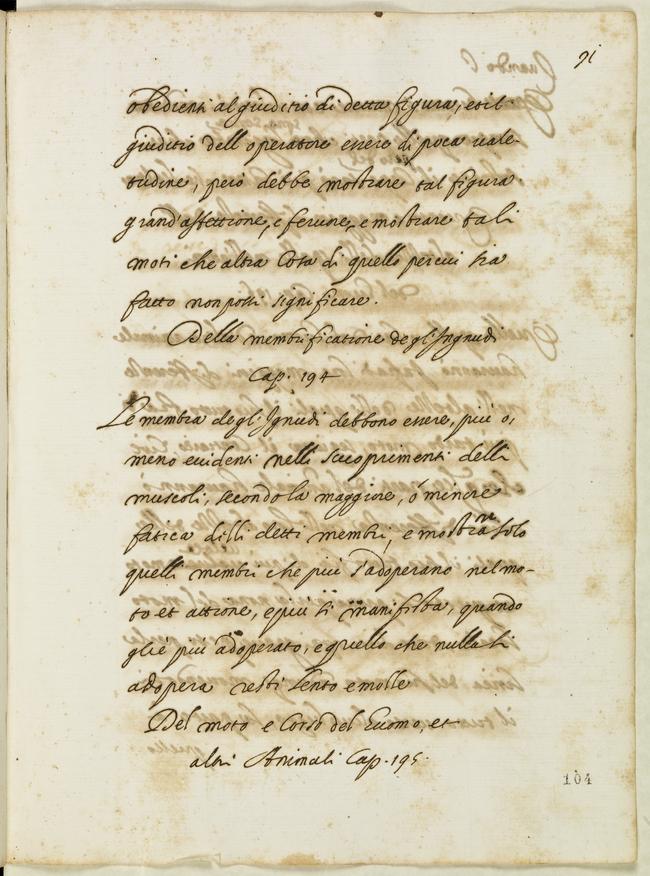 91
obedienti al giuditio di detta figura, et il
giuditio dell operatore essere di poca vale-
tudine, però debbe mostrare tal figura
grand'affettione, e feruore, e mostrare tali
moti che altra Cosa di quello per cui sia
fatto non possi significare.
Della membrificatione degl'Ingnudi
Cap. 194
Le membra degl'Ignudi debbono essere, più o,
meno euidenti nelli scuoprimenti delli
muscoli, secondo la maggiore, ó minore
fatica delli detti membri, e mostrar solo
quelli membri che più s'adoperano nel mo-
to et attione, e più si manifesta, quando
gl'è più adoperato, e quello che nulla si
adopera resti Lento e molle
Del moto e Corso del Euomo, et
altri Animali Cap. 195.
104